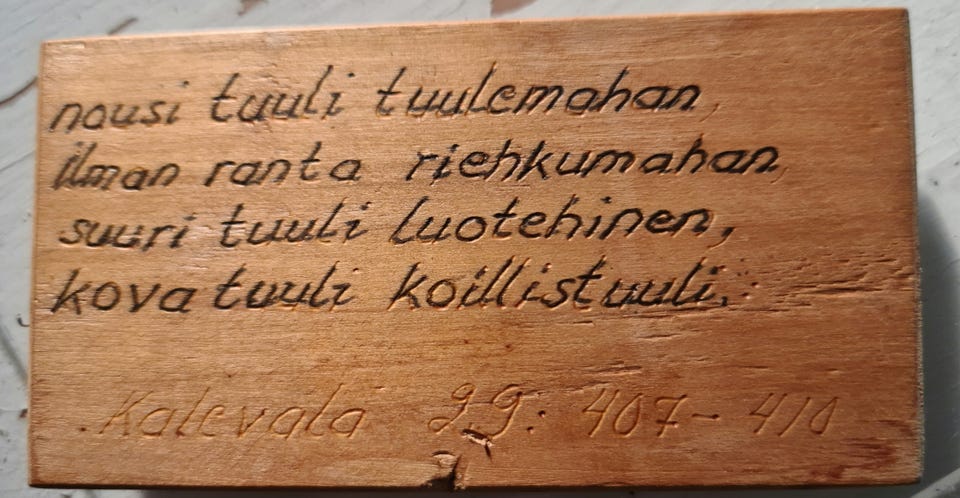 nousi tuuli tuulemahan,
ilman ranta riehkumahan,
suuri tuuli luotehinen,
kova tuuli koillistuuli.
Kalevala 29: 407-410